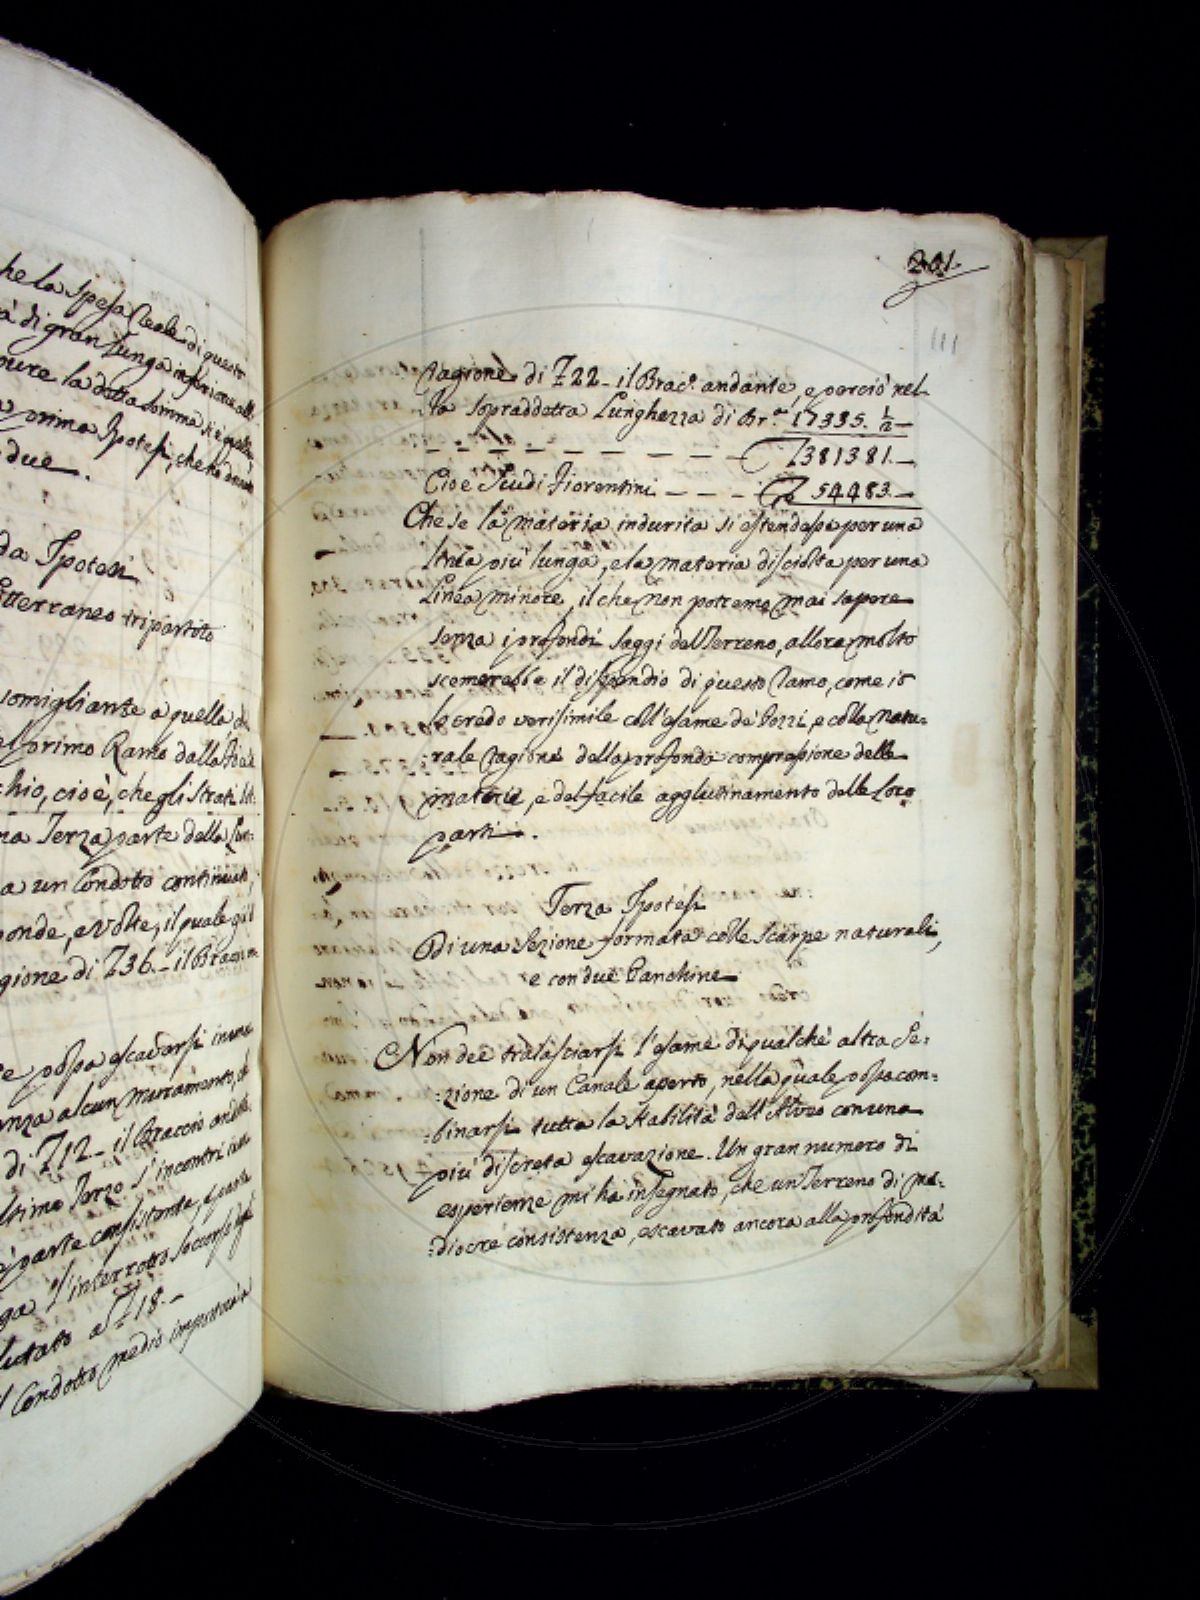 he la spesa reale di questo
à di gran lunga inferiore all
pure la detta somma si è
prima Ipotesi, che ha
due.
da Ipotesi
tterraneo tripartito
somigliante a quella, ch
el primo Ramo dalla
chio, cioè, che gli strati
na Terza parte della Lun-
a un Condotto continuato,
ponde, e Volte, il quale già
gione di £36.– il Braccio
e possa escavarsi in una
enza alcun muramento, a
di £12.– il Braccio andte
ltimo Terzo s'incontri una
parte consistente, e parte
ga l'interrotto soccorso
lutato a £18.–
l Condotto medio importerà a
201.
111
ragione di £22– il Brac.º andante, e perciò nel-
la sopraddetta Lunghezza di Br.ª 17335. ½–
– – – – – – – – £381381.–
Cioè Scudi Fiorentini – – – 54483.–
Che se la materia indurita si estendesse per una
linea più lunga, e la materia disciolta per una
Linea minore, il che non potremo mai sapere
senza i profondi saggi del Terreno, allora molto
scemerebbe il dispendio di questo Ramo, come io
lo credo verisimile coll'esame de' Pozzi, e colla natu-
:rale ragione della profonda compressione delle
materie, e del facile agglutinamento delle Loro
parti.
Terza Ipotesi
Di una Sezione formata colle Scarpe naturali,
e con due Panchine
Non dee tralasciarsi l'esame di qualche altra Se:
:zione di un Canale aperto, nella quale possa com=
:binarsi tutta la stabilità dell'Alveo con una
più discreta escavazione. Un gran numero di
esperienze mi ha insegnato, che un Terreno di me:
:diocre consistenza, escavato ancora alla profondità